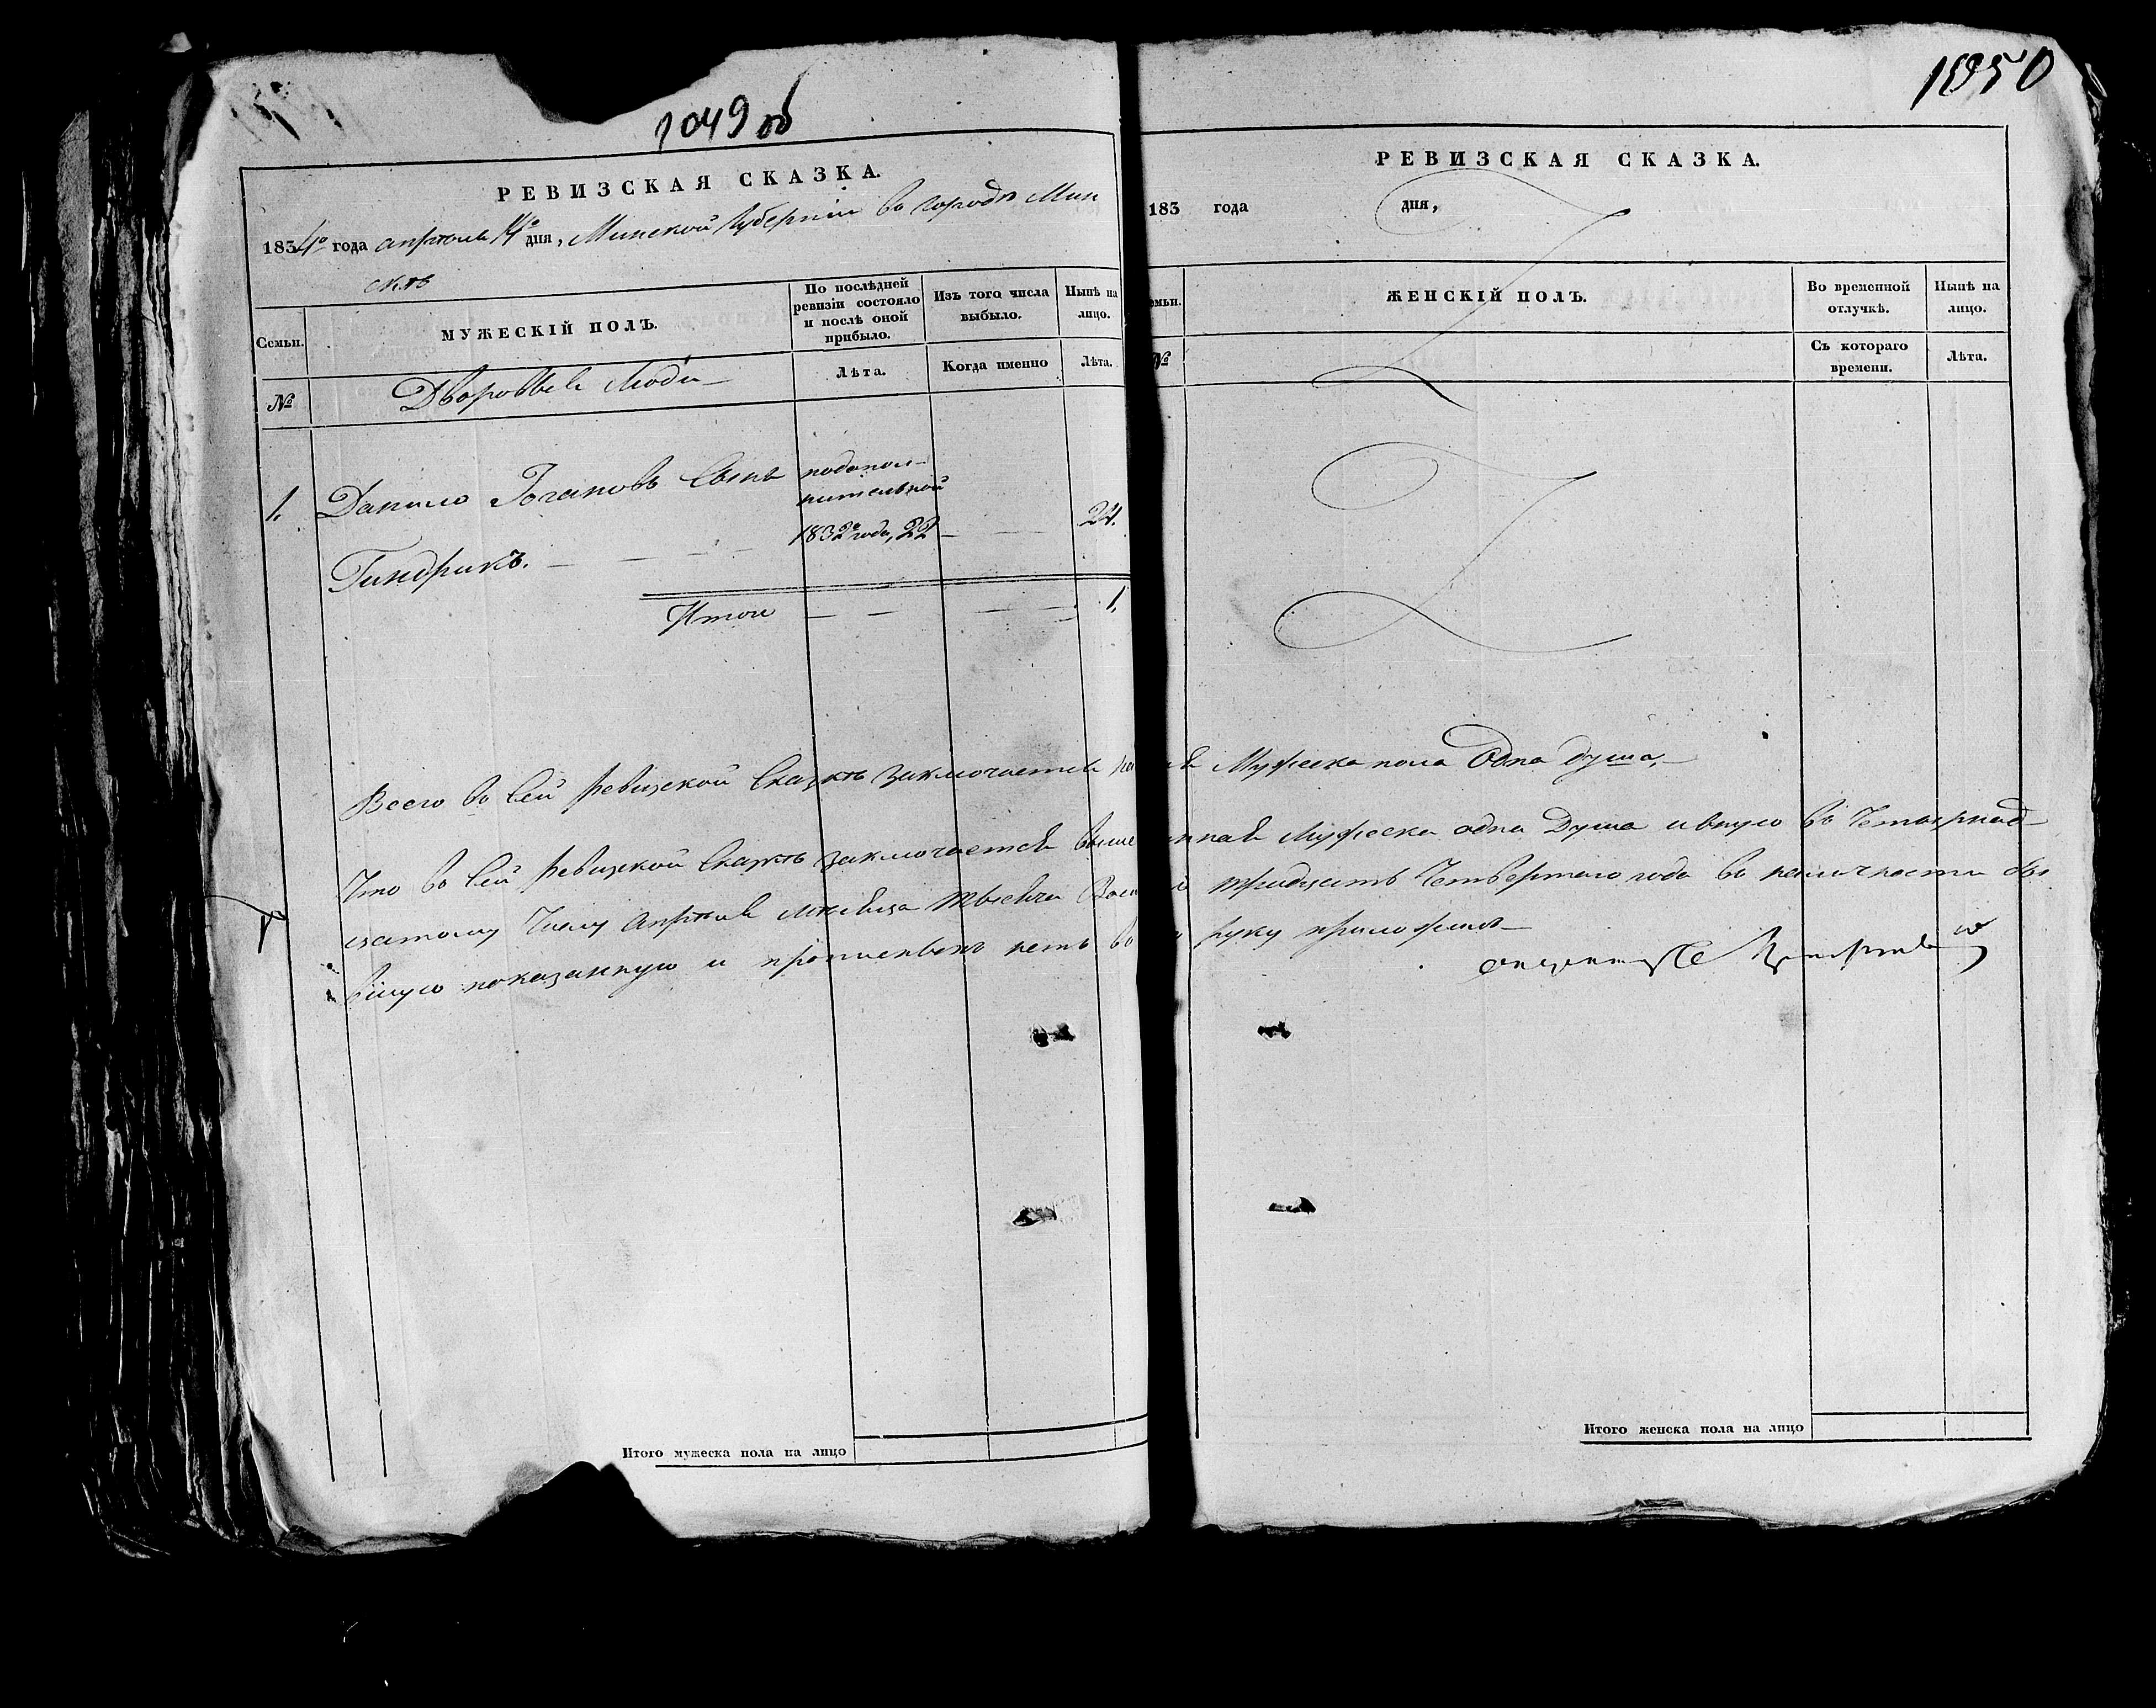 1049 об
РЕВИЗСКАЯ СКАЗКА.
1834го года апреля 14го дня, Минской Губернiи въ городѣ Мин
скѣ
Семьи.
МУЖЕСКІЙ ПОЛЪ.
По послѣдней ревизіи состояло и послѣ оной прибыло.
Изъ того числа выбыло.
Нынѣ на лицо.
№
Дворовые Люди
Лѣта.
Когда именно
Лѣта.
1.
Данило сынъ
Гиндрикъ.
подопол-
нительной
1832го года, 22
24.
Итого 1.
Всего въ сей Ревизской Сказкѣ заключается
Что въ сей Ревизской Сказкѣ заключается выше
цатому Числу Апреля Мѣсяца тысеча Восе
шую показанную и нетъ въ
Итого мужеска пола на лицо
1050
РЕВИЗСКАЯ СКАЗКА.
183 года дня,
емьи.
ЖЕНСКІЙ ПОЛЪ.
Во временной отлучкѣ.
Нынѣ на лицо.
№
Съ котораго времени.
Лѣта.
Мужеска пола Одна душа,
Мужеска одна Душа въ Четырнад
тридцать Четвертого года въ наличности бы
руку приложилъ
Итого женска пола на лицо